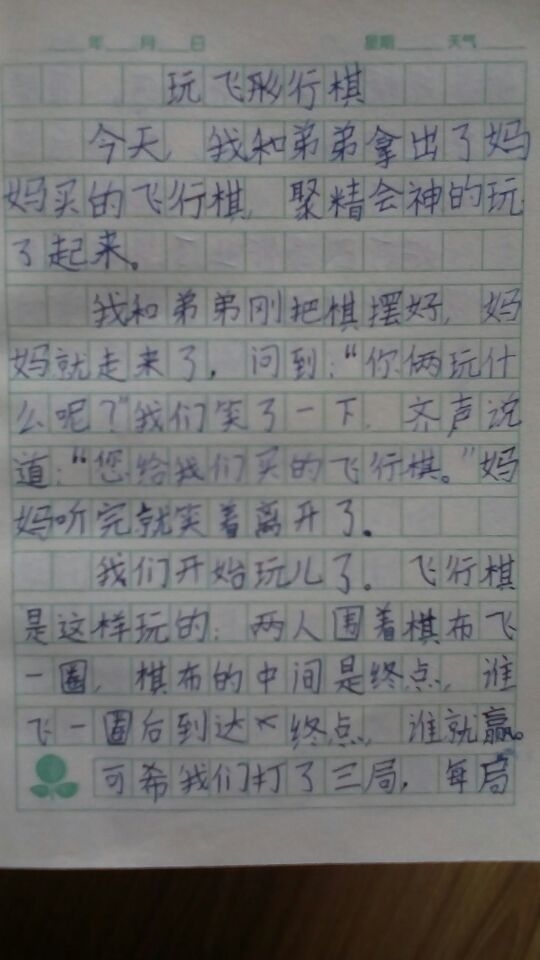 年 月 日 星期 天气
玩飞形行棋
今天，我和弟弟拿出了妈
妈买的飞行棋，聚精会神的玩
了起来。
我和弟弟刚把棋摆好，妈
妈就走来了，问到：“你俩玩什
么呢？”我们笑了一下，齐声说
道：“您给我们买的飞行棋。”妈
妈听完就笑着离开了。
我们开始玩儿了。飞行棋
是这样玩的：两人围着棋布飞
一圈，棋布的中间是终点，谁
飞一圈后到达终点，谁就赢。
可希我们打了三局，每局